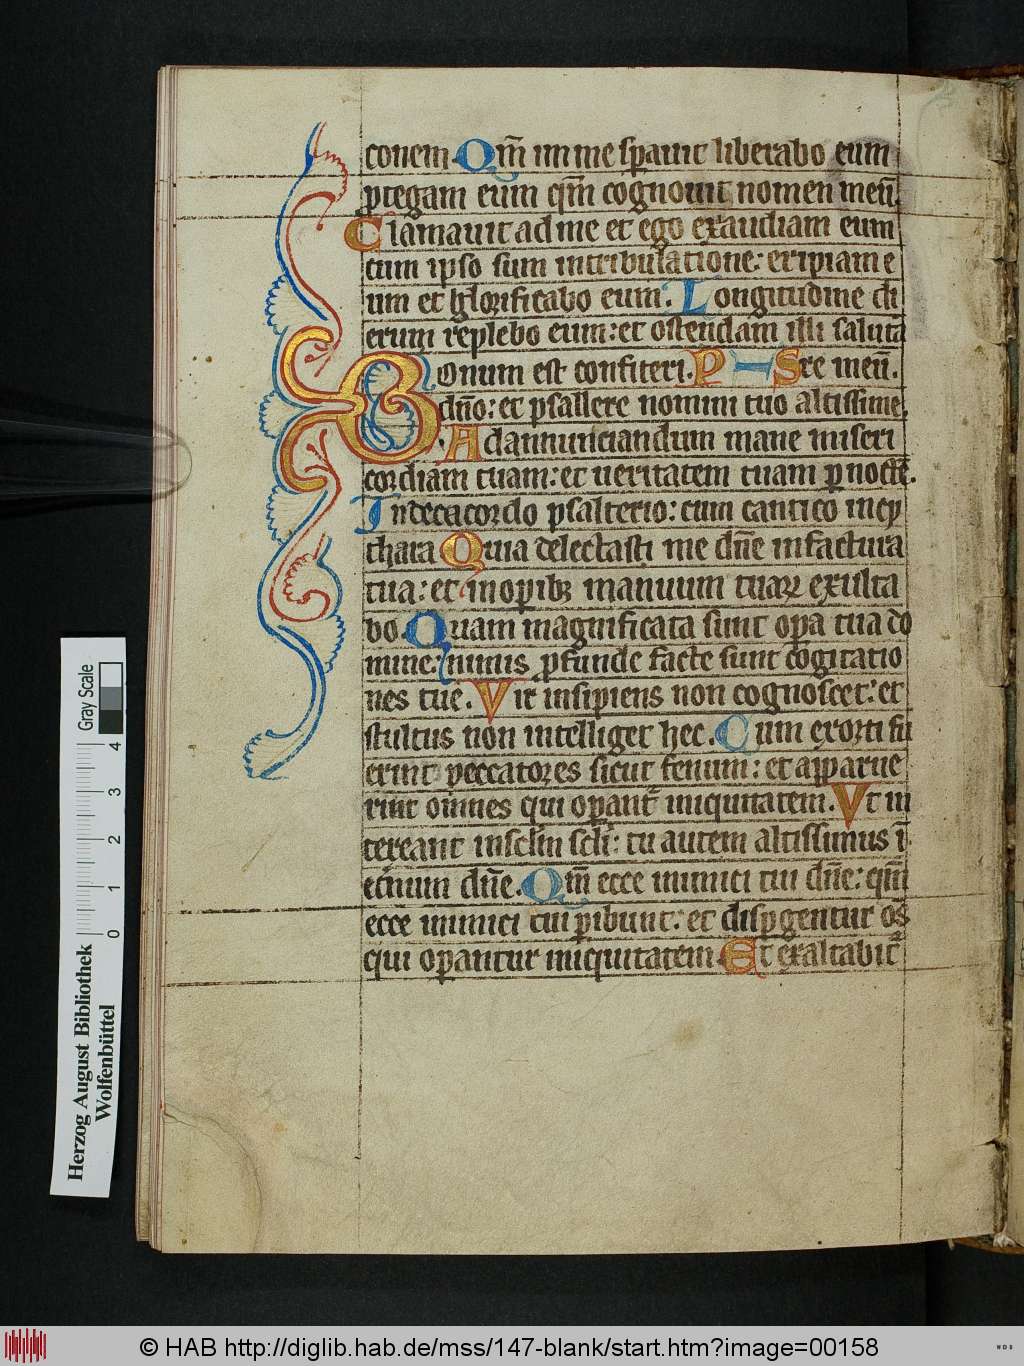 conem Qm̄ in me sꝑauit liberabo eum
ꝓtegam eum qm̄ cognouit nomen meū.
Clamauit ad me et ego exaudiam eum
cum ipso sum in tribulatione: eripiam e
um et glorificabo eum. Longitudine di
erum replebo eum: et ostendam illi saluta
Bonum est confiteri. P Sre meū.
dn̄o: et psallere nomini tuo altissime.
Ad annunciandum mane miseri
cordiam tuam: et ueritatem tuam ꝑ noctē.
In decacordo psalterio: cum cantico in cy
thara Quia delectasti me dn̄e in factura
tua: et in oꝑibꝫ manuum tuaꝝ exulta
bo. Quam magnificata sunt oꝑa tua do
mine: nimis ꝓfunde facte sunt cogitatio
nes tue. Vir insipiens non cognoscet: et
stultus non intelliget hec. Cum exorti fu
erint peccatores sicut fenum: et apparue
rint omnes qui oꝑant᷑ iniquitatem. Vt in
tereant in sclm̄ scli: tu autem altissimus ī
eternum dn̄e. Qm̄ ecce inimici tui dn̄e: qm̄
ecce inimici tui ꝑibunt: et dispgentur os
qui oꝑantur iniquitatem Et exaltabit᷑
Herzog August Bibliothek
Wolfenbüttel
Gray Scale
0 1 2 3 4
© HAB http://diglib.hab.de/mss/147-blank/start.htm?image=00158